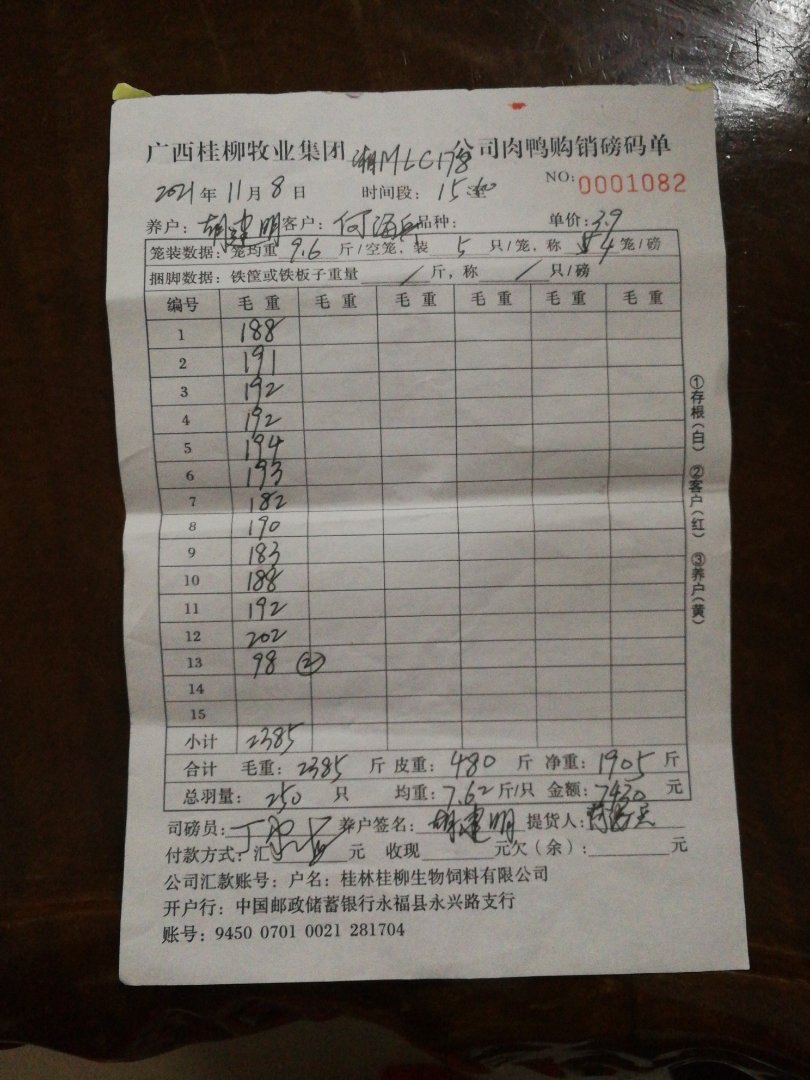 广西桂柳牧业集团 湘MLC178 公司肉鸭购销磅码单
NO:0001082
2021年11月8日 时间段:15:
养户:胡建明 客户:何海兵 品种: 单价:3.9
笼装数据:笼均重 9.6 斤/空笼,装 5 只/笼,称 4 笼/磅
捆脚数据:铁筐或铁板子重量 / 斤,称 / 只/磅
编号 毛重 毛重 毛重 毛重 毛重 毛重
1 188
2 191
3 192
4 192
5 194
6 193
7 182
8 190
9 183
10 188
11 192
12 202
13 98 ②
14
15
小计 2385
合计 毛重:2385 斤 皮重:480 斤 净重:1905 斤
总羽量:250 只 均重:7.62 斤/只 金额:7430 元
司磅员: 养户签名:胡建明 提货人:
付款方式:汇 元 收现 元欠(余): 元
公司汇款账号:户名:桂林桂柳生物饲料有限公司
开户行:中国邮政储蓄银行永福县永兴路支行
账号:9450 0701 0021 281704
①存根(白) ②客户(红) ③养户(黄)